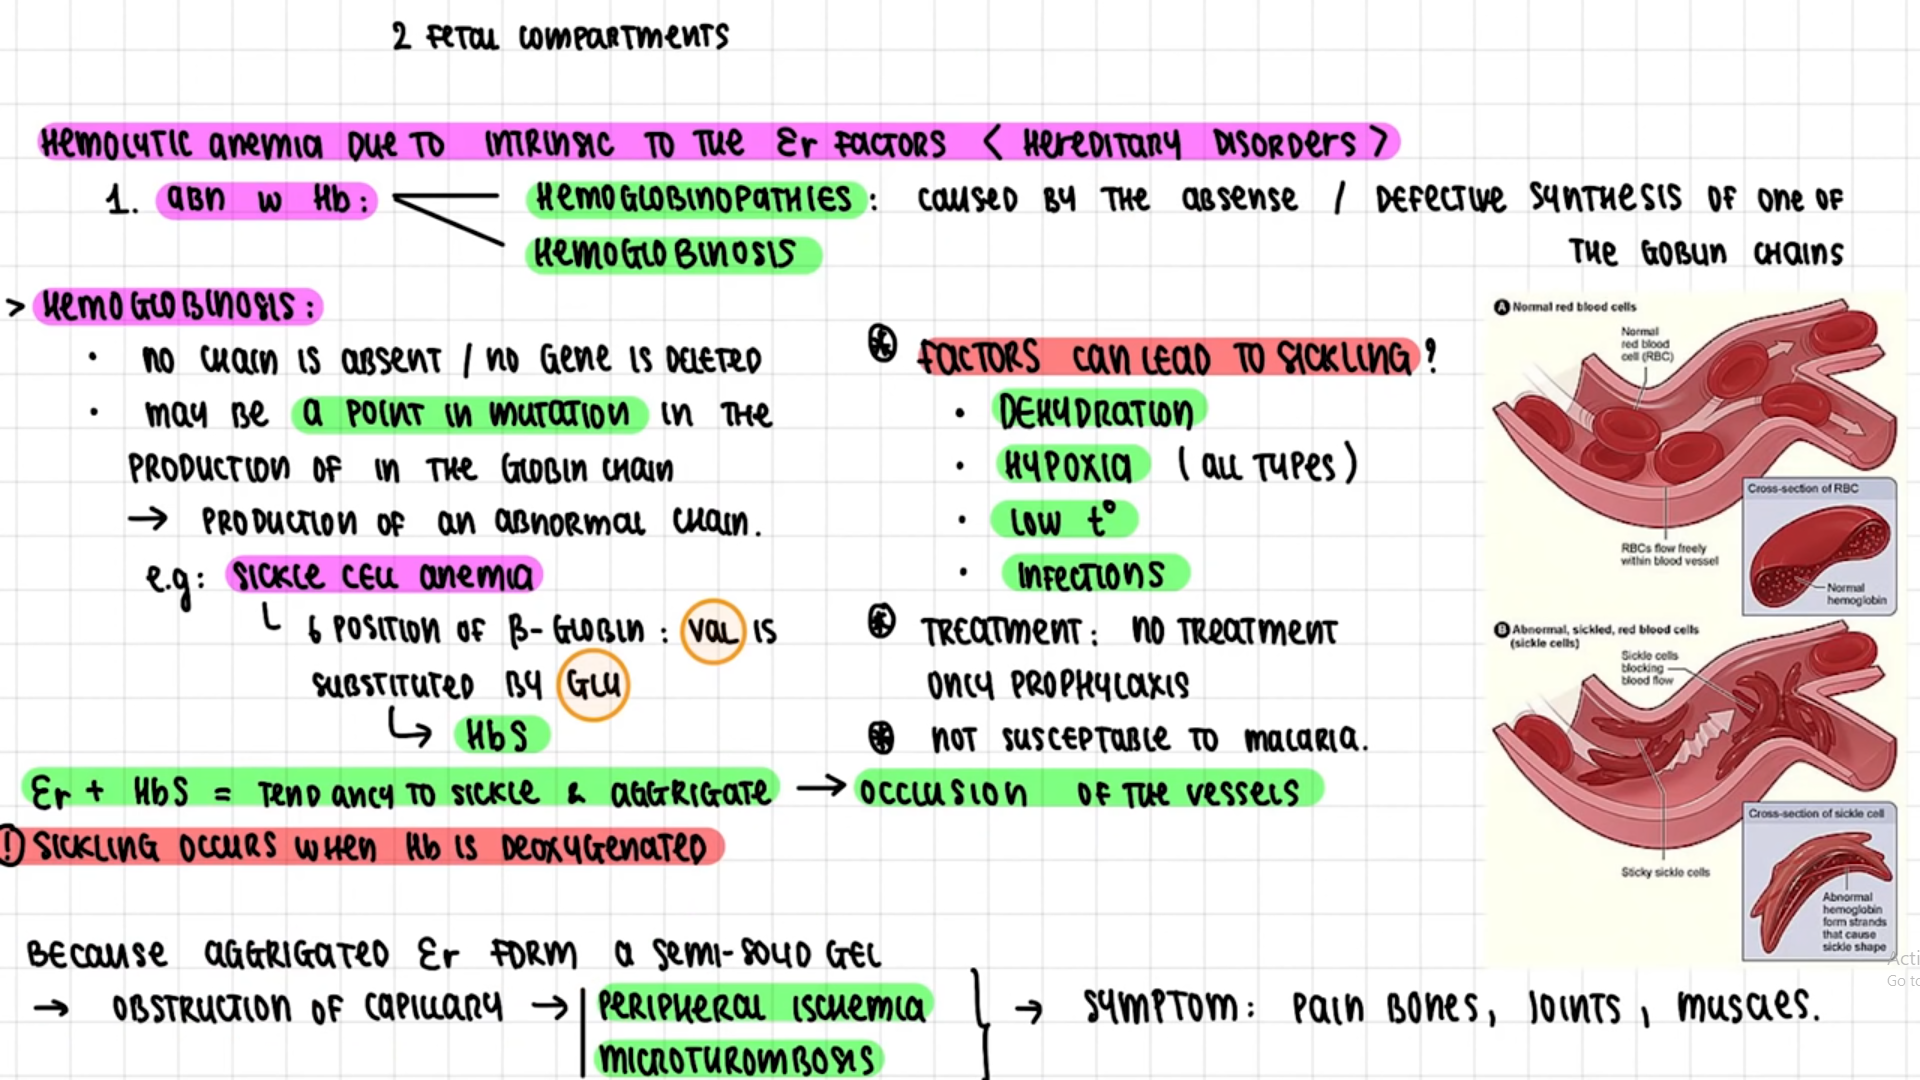 2 FETAL COMPARTMENTS
HEMOLYTIC ANEMIA DUE TO INTRINSIC TO THE Er FACTORS < HEREDITARY DISORDERS >
1. ABN W Hb: HEMOGLOBINOPATHIES: CAUSED BY THE ABSENSE / DEFECTIVE SYNTHESIS OF ONE OF
THE GOBLIN CHAINS
HEMOGLOBINOSIS
> HEMOGLOBINOSIS:
• NO CHAIN IS ABSENT / NO GENE IS DELETED
• MAY BE A POINT IN MUTATION IN THE
PRODUCTION OF IN THE GLOBIN CHAIN
→ PRODUCTION OF AN ABNORMAL CHAIN.
e.g: SICKLE CELL ANEMIA
6 POSITION OF β-GLOBIN: VAL IS
SUBSTITUTED BY GLU
HbS
Er + HbS = TENDANCY TO SICKLE & AGGRIGATE → OCCLUSION OF THE VESSELS
! SICKLING OCCURS WHEN Hb IS DEOXYGENATED
FACTORS CAN LEAD TO SICKLING?
• DEHYDRATION
• HYPOXIA (ALL TYPES)
• LOW t°
• INFECTIONS
TREATMENT: NO TREATMENT
ONLY PROPHYLAXIS
NOT SUSCEPTABLE TO MALARIA.
A Normal red blood cells
Normal
red blood
cell (RBC)
Cross-section of RBC
RBCs flow freely
within blood vessel
Normal
hemoglobin
B Abnormal, sickled, red blood cells
(sickle cells)
Sickle cells
blocking
blood flow
Cross-section of sickle cell
Sticky sickle cells
Abnormal
hemoglobin
form strands
that cause
sickle shape
Acti
Go to
BECAUSE AGGRIGATED Er FORM A SEMI-SOLID GEL
→ OBSTRUCTION OF CAPILLARY → PERIPHERAL ISCHEMIA → SYMPTOM: PAIN BONES, JOINTS, MUSCLES.
MICROTHROMBOSIS